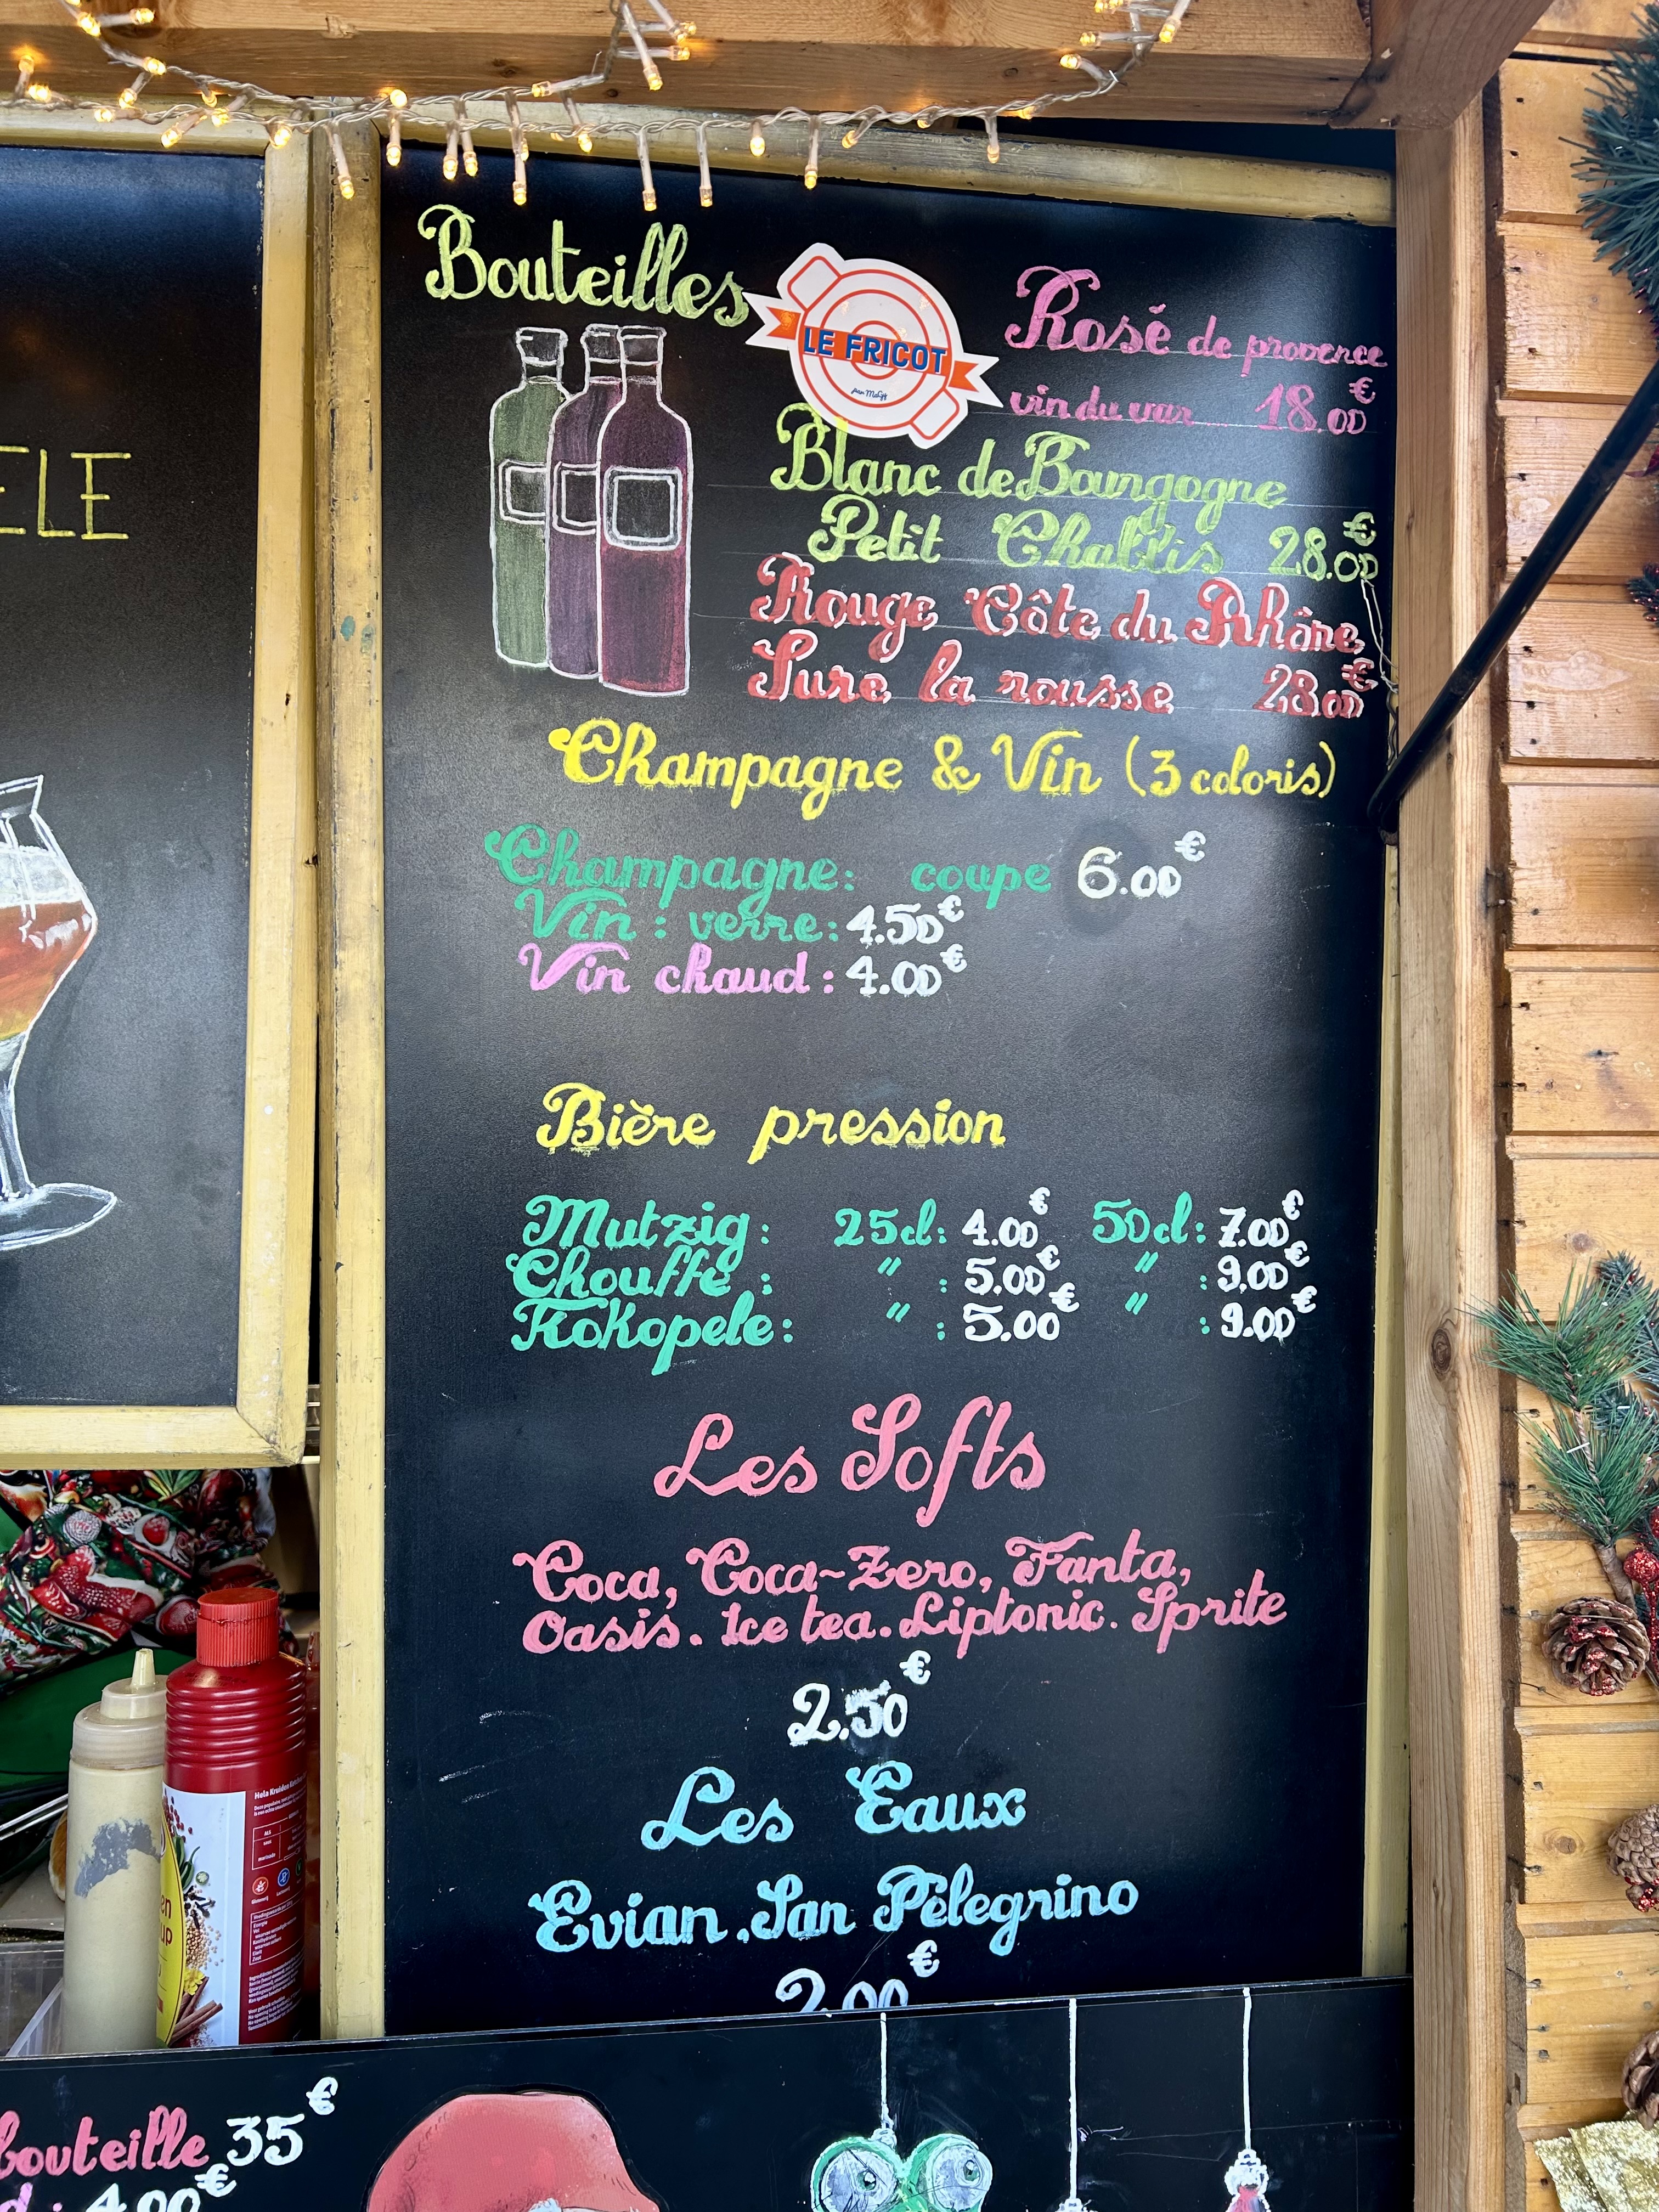 Bouteilles
LE FRICOT
Rosé de provence
vin du var... 18.00€
Blanc de Bourgogne
Petit Chablis 28.00€
Rouge Côte du Rhône
Sure la rousse 28.00€
Champagne & Vin (3 coloris)
Champagne: coupe 6.00€
Vin: verre: 4.50€
Vin chaud: 4.00€
Bière pression
Mutzig: 25cl: 4.00€ 50cl: 7.00€
Chouffe: " : 5.00€ " : 9.00€
Kokopele: " : 5.00€ " : 9.00€
Les Softs
Coca, Coca-Zero, Fanta,
Oasis. Ice tea. Liptonic. Sprite
2.50€
Les Eaux
Evian. San Pélegrino
2.00€
ELE
bouteille 35€
4.00€